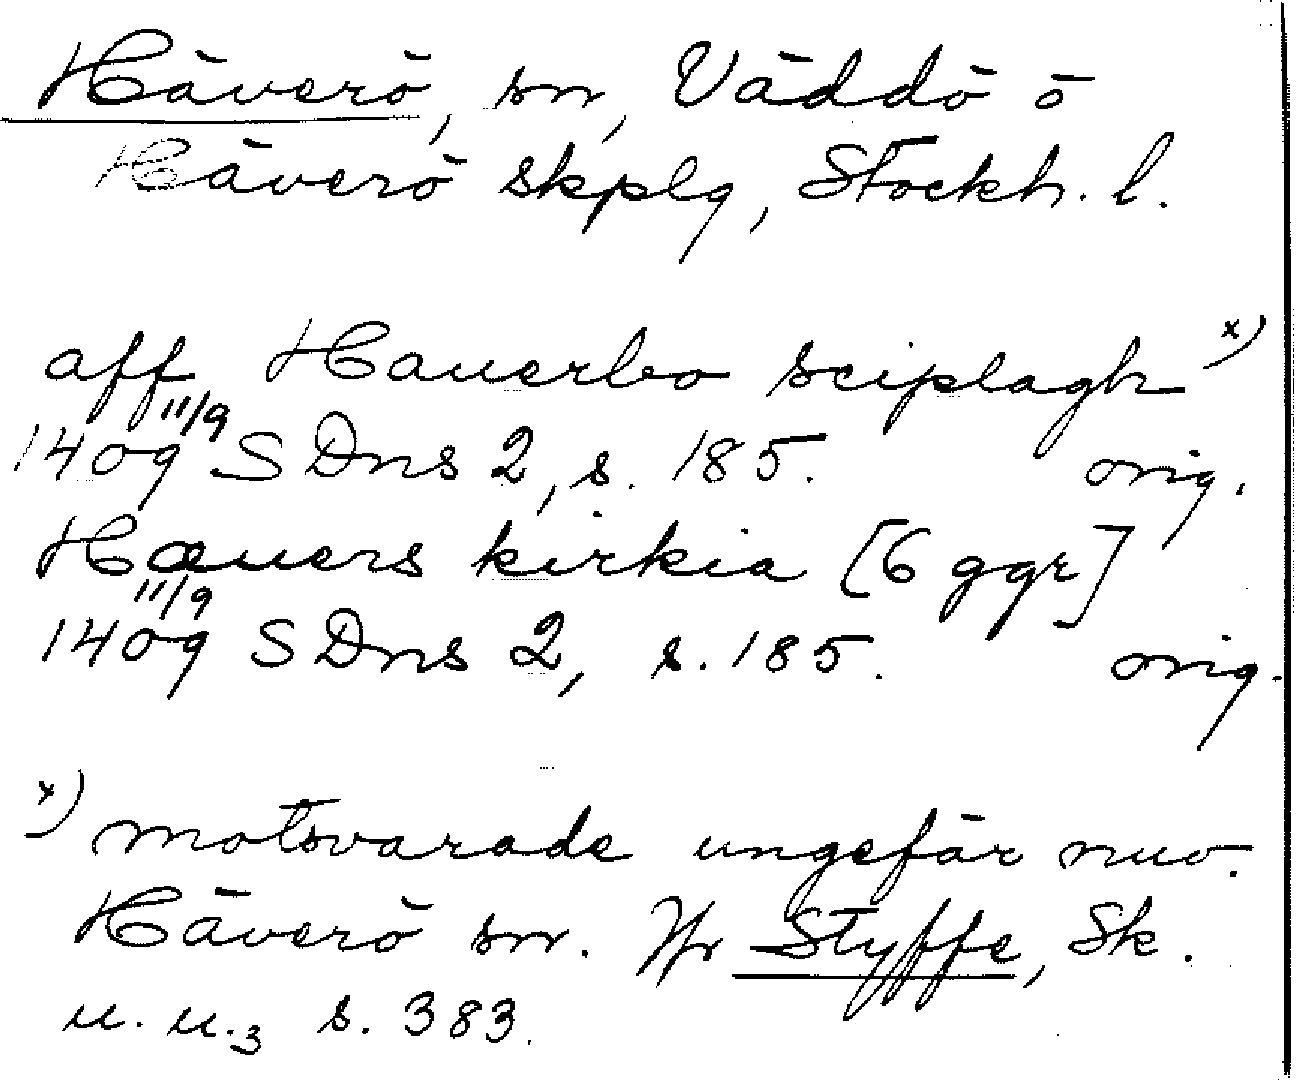 Häverö, sn, Väddö o
Häverö skplg, Stockh. l.
aff Hauerbo sciplagh x)
1409 11/9 SDns 2, s. 185. orig.
Hæuers kirkia [6 ggr]
1409 11/9 SDns 2, s. 185. orig.
x) motsvarade ungefär nuv.
Häverö sn. Jfr Styffe, Sk.
u. u.3 s. 383.